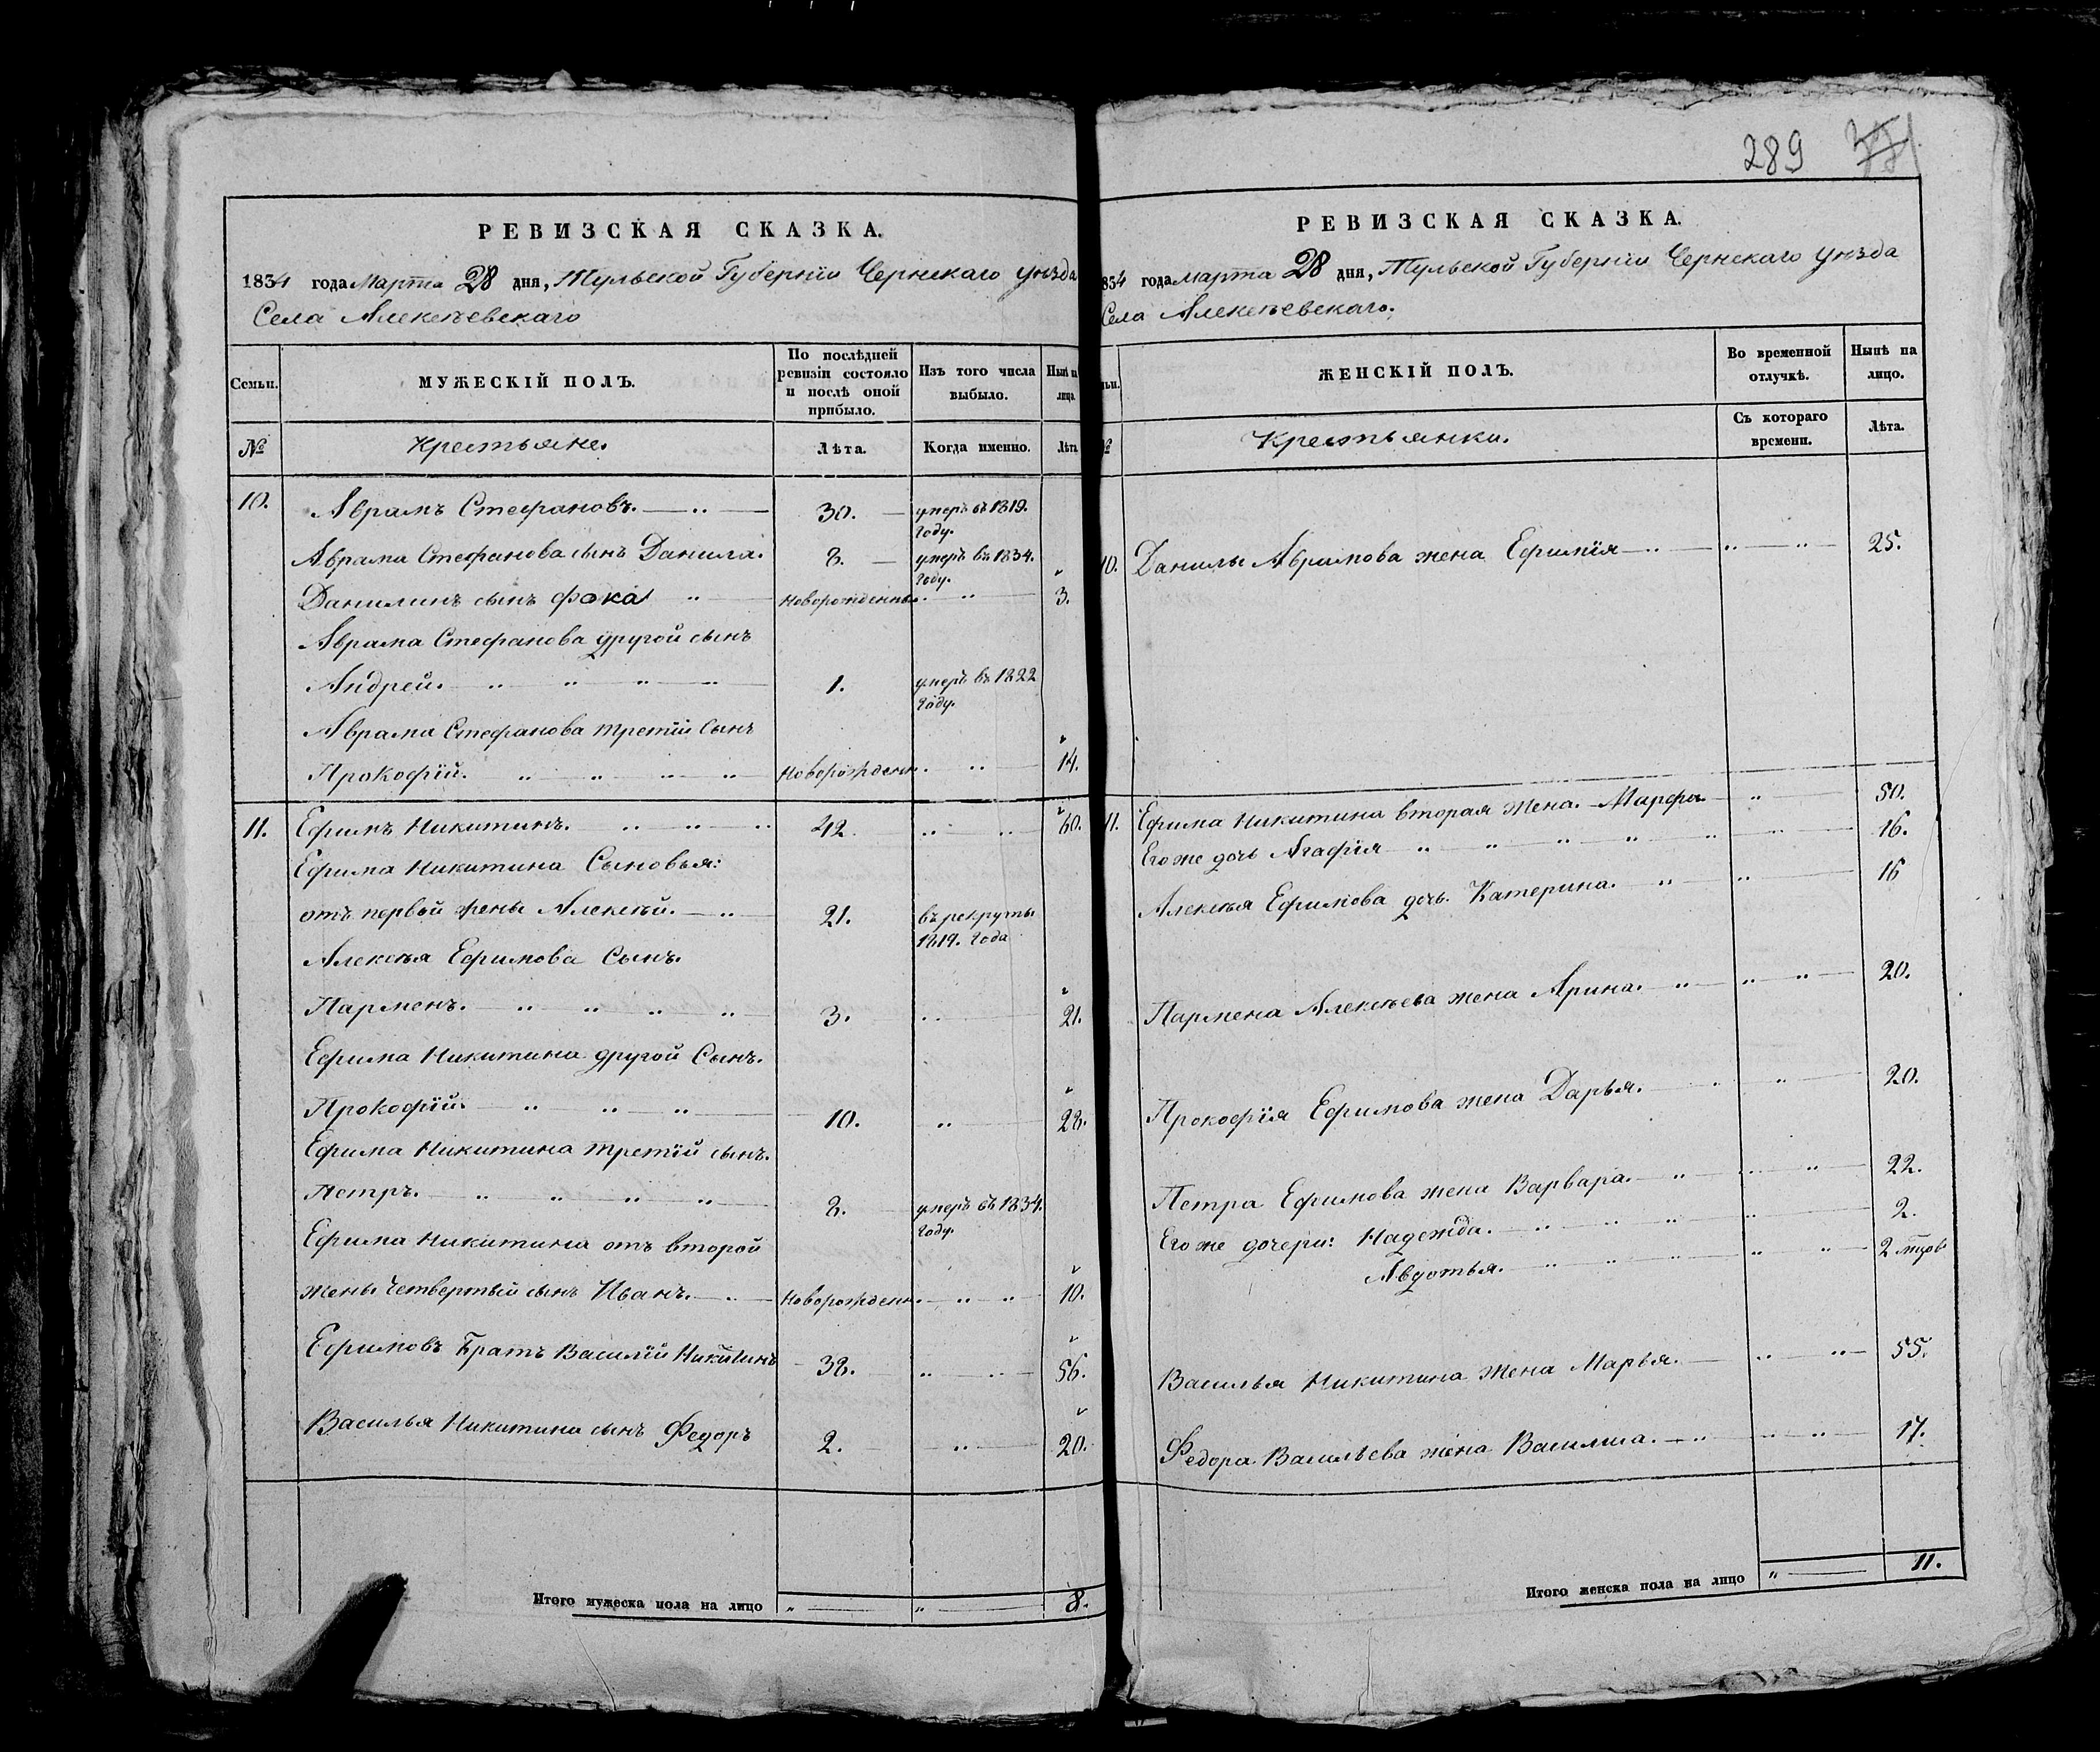 289
РЕВИЗСКАЯ СКАЗКА.
1834 года Марта 28 дня, Тульской Губерніи Чернскаго уѣзда
Села Алексѣевскаго
Семьи.
МУЖЕСКІЙ ПОЛЪ.
По послѣдней ревизіи состояло и послѣ оной прибыло.
Изъ того числа выбыло.
Нынѣ на лицо.
№
Крестьяне.
Лѣта.
Когда именно.
Лѣта
10. Аврамъ Стефановъ. 30. умеръ въ 1819. году.
Аврама Стефанова сынъ Данила. 8. умеръ въ 1834. году.
Данилинъ сынъ Фока новорожденны. 3.
Аврама Стефанова другой сынъ
Андрей. 1. умеръ въ 1822 году.
Аврама Стефанова третій сынъ
Прокофій. новорожден. 14.
11. Ефимъ Никитинъ. 42. 60.
Ефима Никитина Сыновья:
отъ первой жены Алексѣй. 21. въ рекруты 1819. года
Алексѣя Ефимова Сынъ.
Парменъ. 3. 21.
Ефима Никитина другой Сынъ.
Прокофій. 10. 28.
Ефима Никитина третій сынъ.
Петръ. 8. умеръ въ 1834. году.
Ефима Никитина отъ второй
жены четвертый сынъ Иванъ. новорожден. 10.
Ефимовъ Братъ Василій Никитинъ 38. 56.
Василья Никитина сынъ Федоръ 2. 20.
Итого мужеска пола на лицо 8.
РЕВИЗСКАЯ СКАЗКА.
834 года марта 28 дня, Тульской Губерніи Чернскаго уѣзда
Села Алексѣевскаго.
ьи.
ЖЕНСКІЙ ПОЛЪ.
Во временной отлучкѣ.
Нынѣ на лицо.
№
Крестьянки.
Съ котораго времени.
Лѣта.
10. Данилы Аврамова жена Ефимія 25.
11. Ефима Никитина вторая жена. Марфа. 50.
Его же дочь Агафія 16.
Алексѣя Ефимова дочь. Катерина. 16
Пармена Алексѣева жена Арина. 20.
Прокофія Ефимова жена Дарья. 20.
Петра Ефимова жена Варвара. 22.
Его же дочери: Надежда. 2.
Авдотья. 2 мцов
Василья Никитина жена Марья. 55.
Федора Васильева жена Василиса. 17.
Итого женска пола на лицо 11.